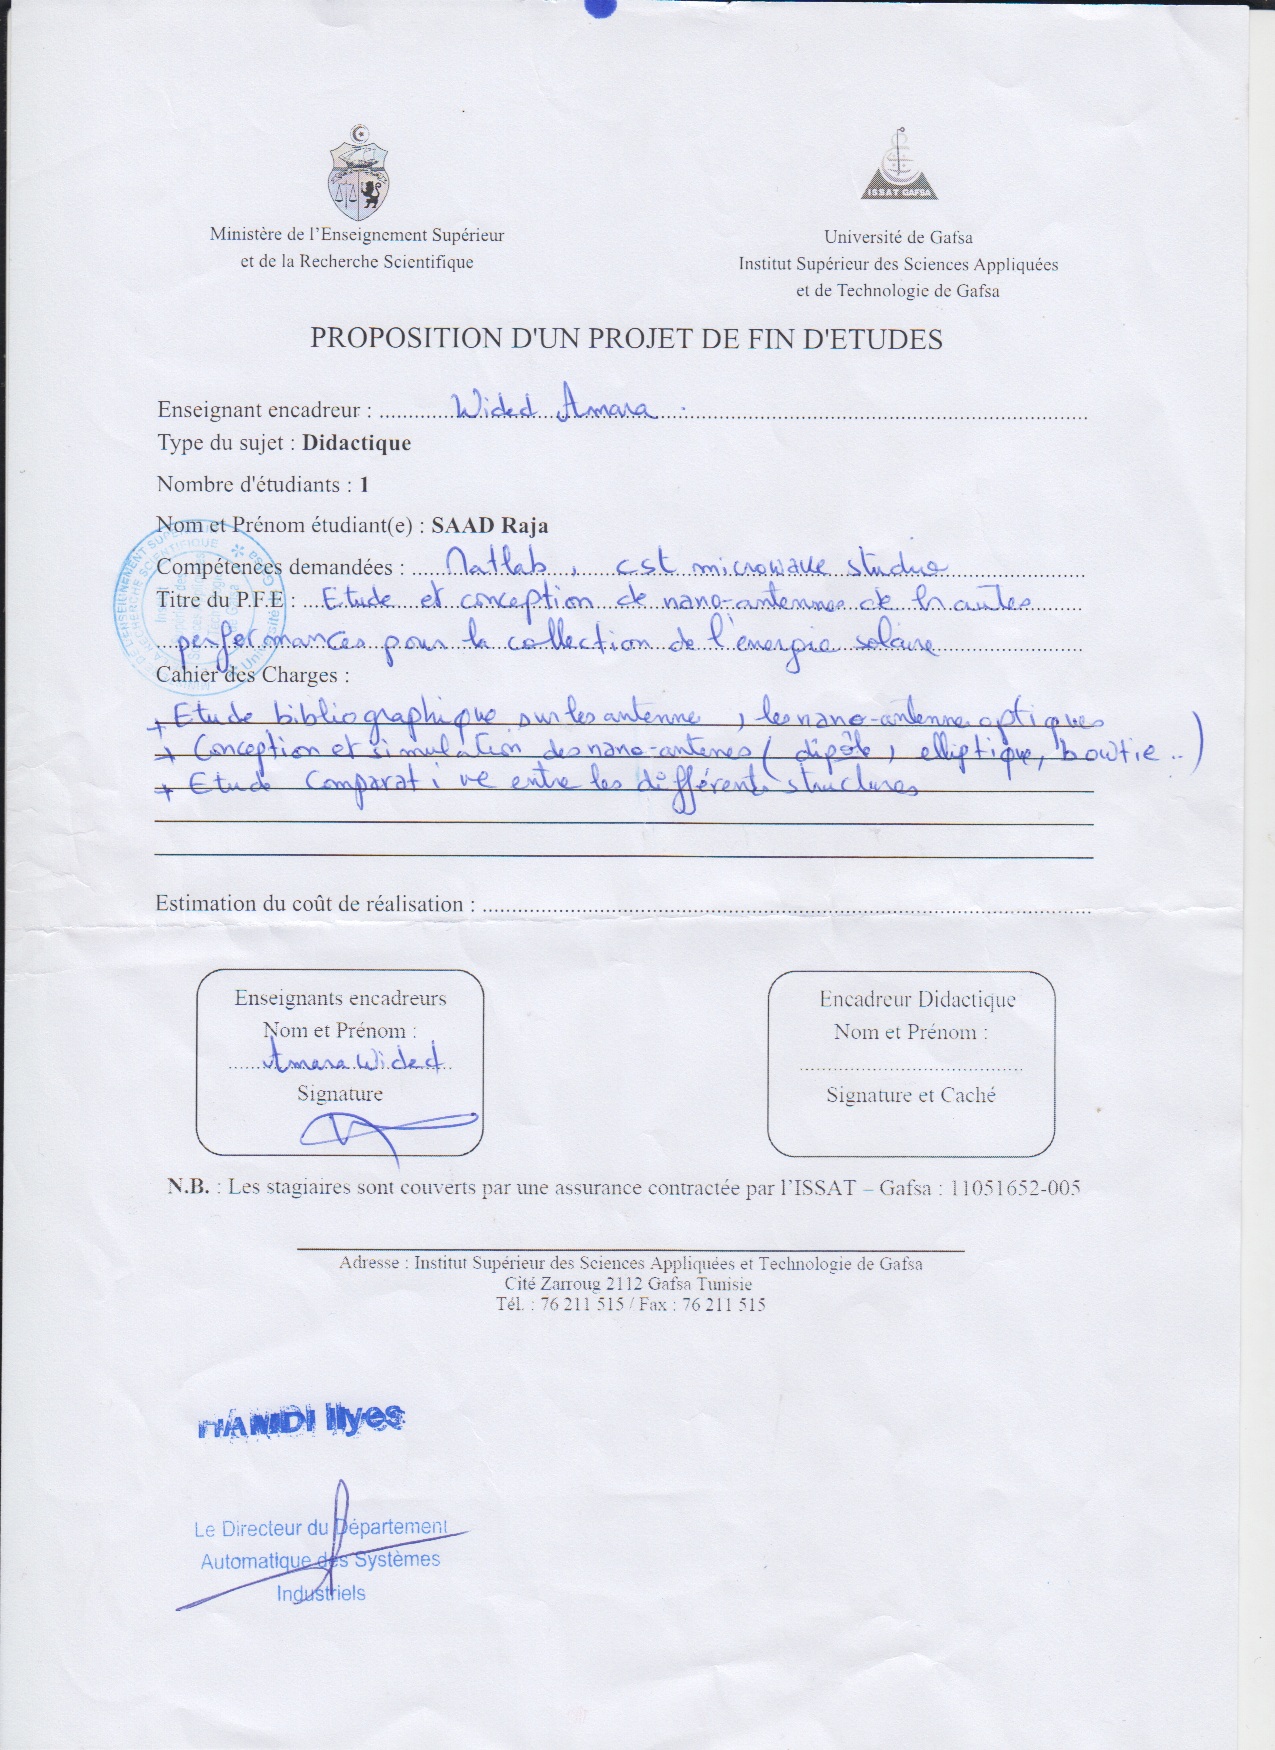 ISSAT GAFSA
Ministère de l'Enseignement Supérieur
et de la Recherche Scientifique
Université de Gafsa
Institut Supérieur des Sciences Appliquées
et de Technologie de Gafsa
PROPOSITION D'UN PROJET DE FIN D'ETUDES
Enseignant encadreur : Wided Amara
Type du sujet : Didactique
Nombre d'étudiants : 1
Nom et Prénom étudiant(e) : SAAD Raja
Compétences demandées : Matlab, cst microwave studio
Titre du P.F.E : Etude et conception de nano-antennes de hautes
performances pour la collection de l'énergie solaire
Cahier des Charges :
+ Etude bibliographique sur les antenne, les nano-antenne optiques
+ Conception et simulation des nano-antenes (dipôle, elliptique, bowtie ..)
+ Etude Comparative entre les différents structures
Estimation du coût de réalisation :
Enseignants encadreurs
Nom et Prénom :
Amara Wided
Signature
Encadreur Didactique
Nom et Prénom :
Signature et Caché
N.B. : Les stagiaires sont couverts par une assurance contractée par l'ISSAT – Gafsa : 11051652-005
Adresse : Institut Supérieur des Sciences Appliquées et Technologie de Gafsa
Cité Zarroug 2112 Gafsa Tunisie
Tél. : 76 211 515 / Fax : 76 211 515
HAMDI Ilyes
Le Directeur du Département
Automatique des Systèmes
Industriels